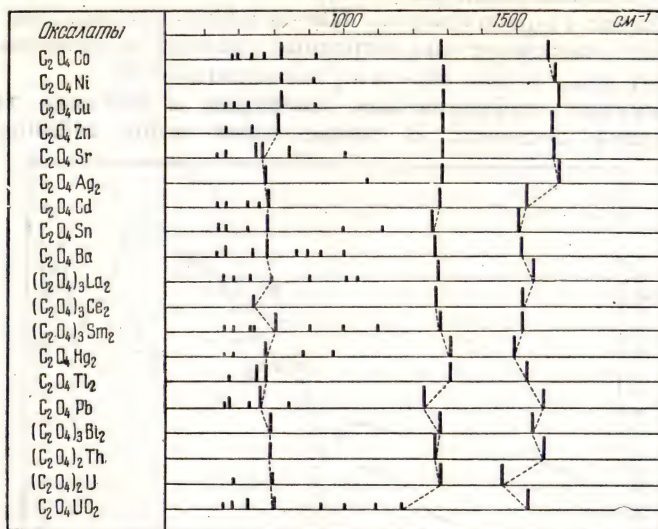 Оксалаты 1000 1500 см⁻¹
C₂O₄Co
C₂O₄Ni
C₂O₄Cu
C₂O₄Zn
C₂O₄Sr
C₂O₄Ag₂
C₂O₄Cd
C₂O₄Sn
C₂O₄Ba
(C₂O₄)₃La₂
(C₂O₄)₃Ce₂
(C₂O₄)₃Sm₂
C₂O₄Hg₂
C₂O₄Tl₂
C₂O₄Pb
(C₂O₄)₃Bi₂
(C₂O₄)₂Th
(C₂O₄)₂U
C₂O₄UO₂